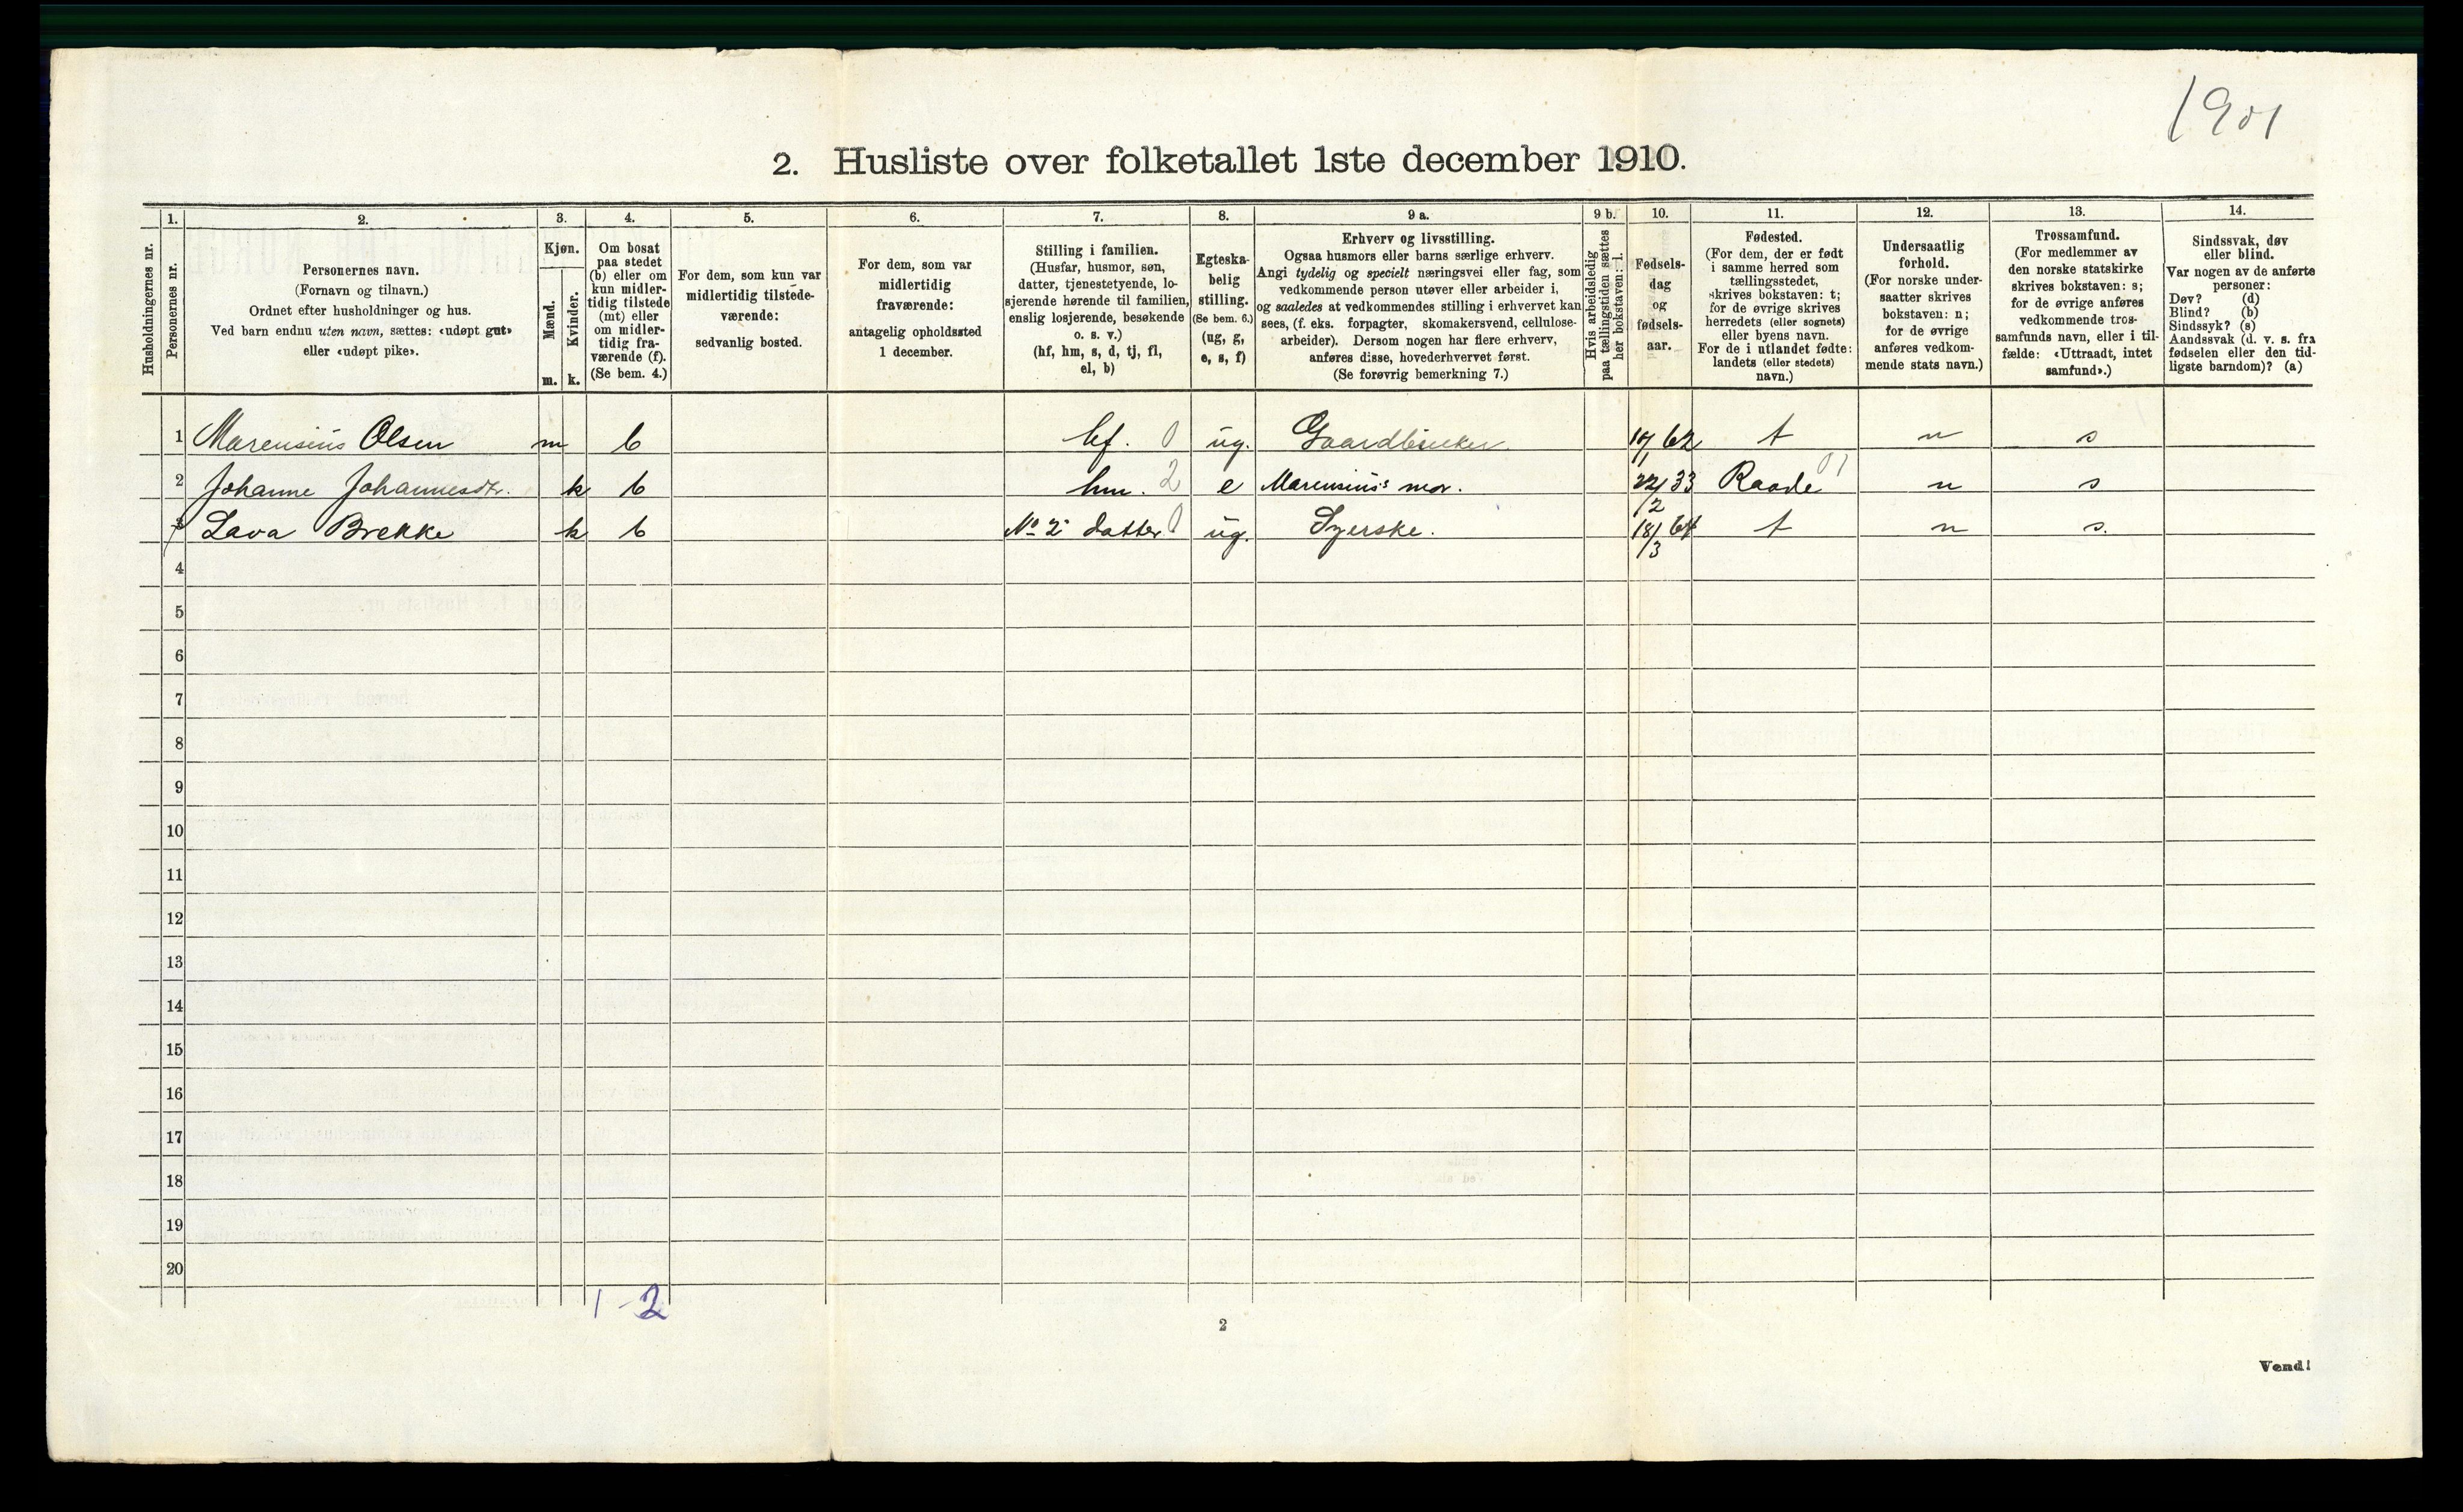 1901
2. Husliste over folketallet 1ste december 1910.
Husholdningernes nr.
1.
Personernes nr.
2.
Personernes navn.
(Fornavn og tilnavn.)
Ordnet efter husholdninger og hus.
Ved barn endnu uten navn, sættes: «udøpt gut»
eller «udøpt pike».
3.
Kjøn.
Mænd.
Kvinder.
m. k.
4.
Om bosat
paa stedet
(b) eller om
kun midler-
tidig tilstede
(mt) eller
om midler-
tidig fra-
værende (f).
(Se bem. 4.)
5.
For dem, som kun var
midlertidig tilstede-
værende:
sedvanlig bosted.
6.
For dem, som var
midlertidig
fraværende:
antagelig opholdssted
1 december.
7.
Stilling i familien.
(Husfar, husmor, søn,
datter, tjenestetyende, lo-
sjerende hørende til familien,
enslig losjerende, besøkende
o. s. v.)
(hf, hm, s, d, tj, fl,
el, b)
8.
Egteska-
belig
stilling.
(Se bem. 6.)
(ug, g,
e, s, f)
9 a.
Erhverv og livsstilling.
Ogsaa husmors eller barns særlige erhverv.
Angi tydelig og specielt næringsvei eller fag, som
vedkommende person utøver eller arbeider i,
og saaledes at vedkommendes stilling i erhvervet kan
sees, (f. eks. forpagter, skomakersvend, cellulose-
arbeider). Dersom nogen har flere erhverv,
anføres disse, hovederhvervet først.
(Se forøvrig bemerkning 7.)
9 b.
Hvis arbeidsledig
paa tællingstiden sættes
her bokstaven: l.
10.
Fødsels-
dag
og
fødsels-
aar.
11.
Fødested.
(For dem, der er født
i samme herred som
tællingsstedet,
skrives bokstaven: t;
for de øvrige skrives
herredets (eller sognets)
eller byens navn.
For de i utlandet fødte:
landets (eller stedets)
navn.)
12.
Undersaatlig
forhold.
(For norske under-
saatter skrives
bokstaven: n;
for de øvrige
anføres vedkom-
mende stats navn.)
13.
Trossamfund.
(For medlemmer av
den norske statskirke
skrives bokstaven: s;
for de øvrige anføres
vedkommende tros-
samfunds navn, eller i til-
fælde: «Uttraadt, intet
samfund».)
14.
Sindssvak, døv
eller blind.
Var nogen av de anførte
personer:
Døv? (d)
Blind? (b)
Sindssyk? (s)
Aandssvak (d. v. s. fra
fødselen eller den tid-
ligste barndom)? (a)
1 Marensius Olsen m b hf. 0 ug. Gaardbruker 62 t n s
2 Johanne Johannesdtr. k b hm. 2 e Marensius's mor. 22/2 33 Raade 01 n s
3 Lava Brekke k b No 2's datter 0 ug. Syerske. 18/3 64 t n s.
4
5
6
7
8
9
10
11
12
13
14
15
16
17
18
19
20
1 - 2
2
Vend!